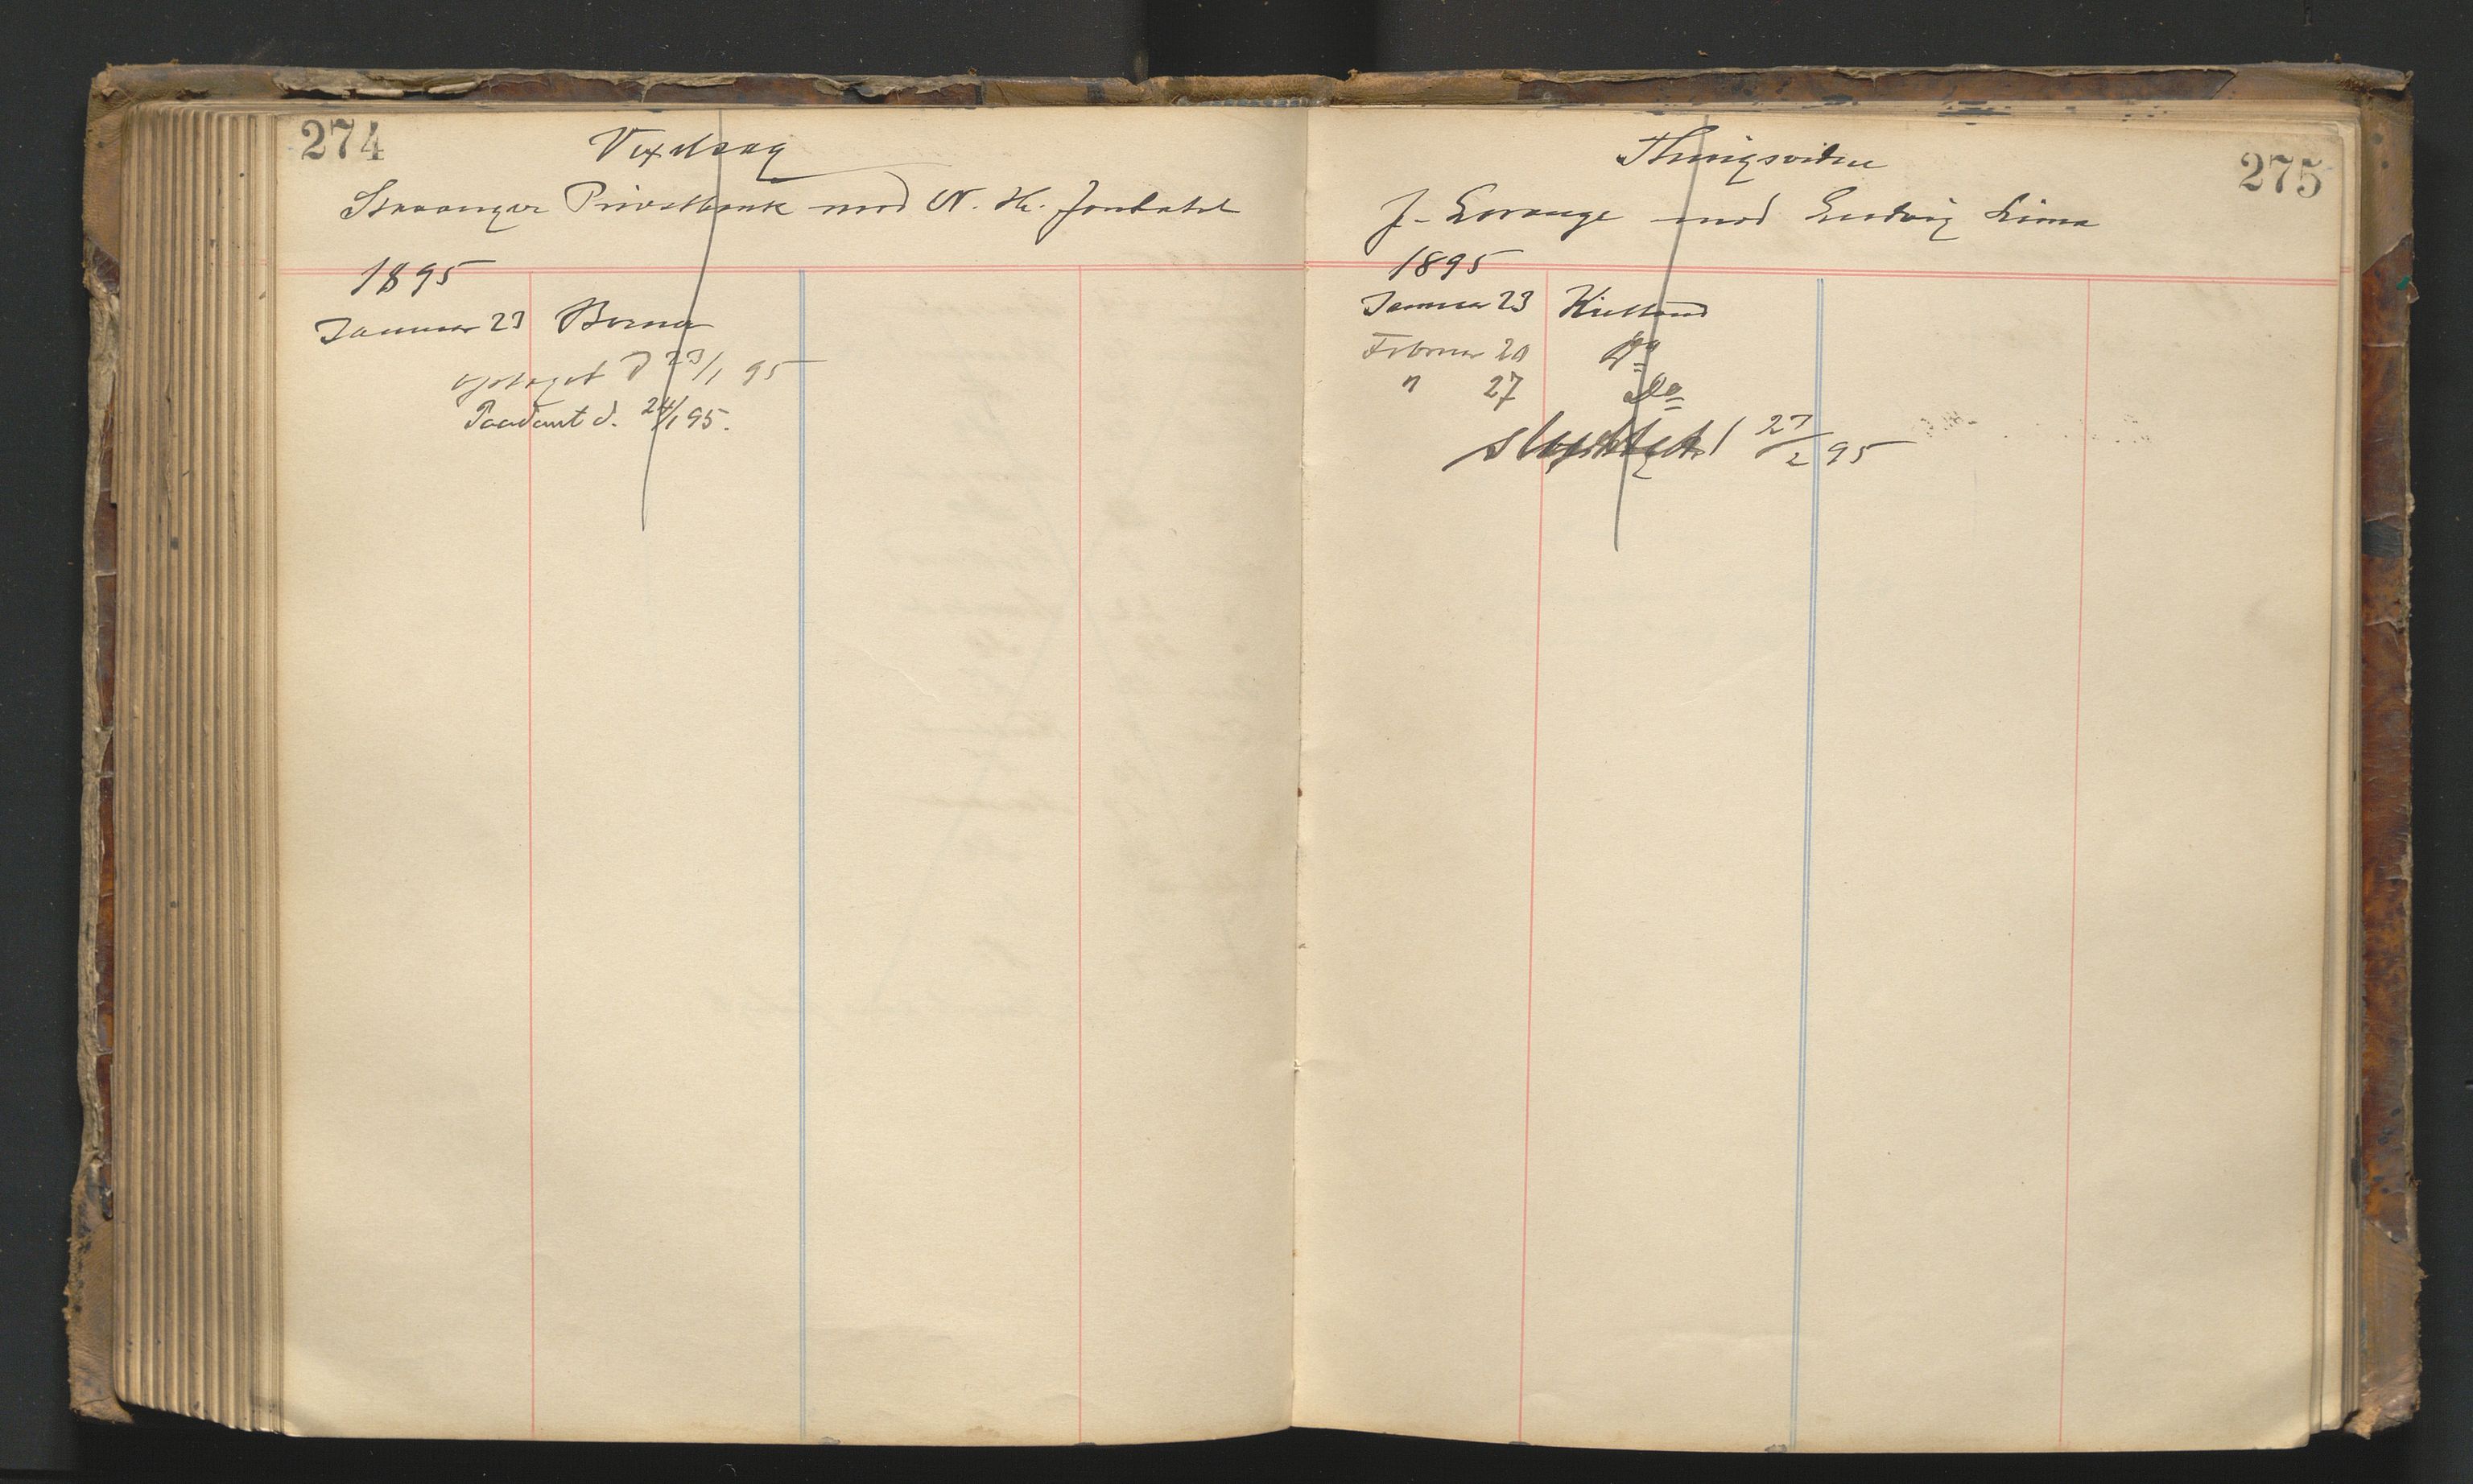 274
Vexelsag
Stavanger Privatbank mod N. Hr.
1895
Januar 23 Borna
optaget d 23/1 95
Paadømt d. 24/1 95.
275
Thingsvidne
J. Lorange mod Ludvig Lima
1895
Januar 23 Kielland
Februar 20 Do
" 27 Do
sluttet 27/2 95